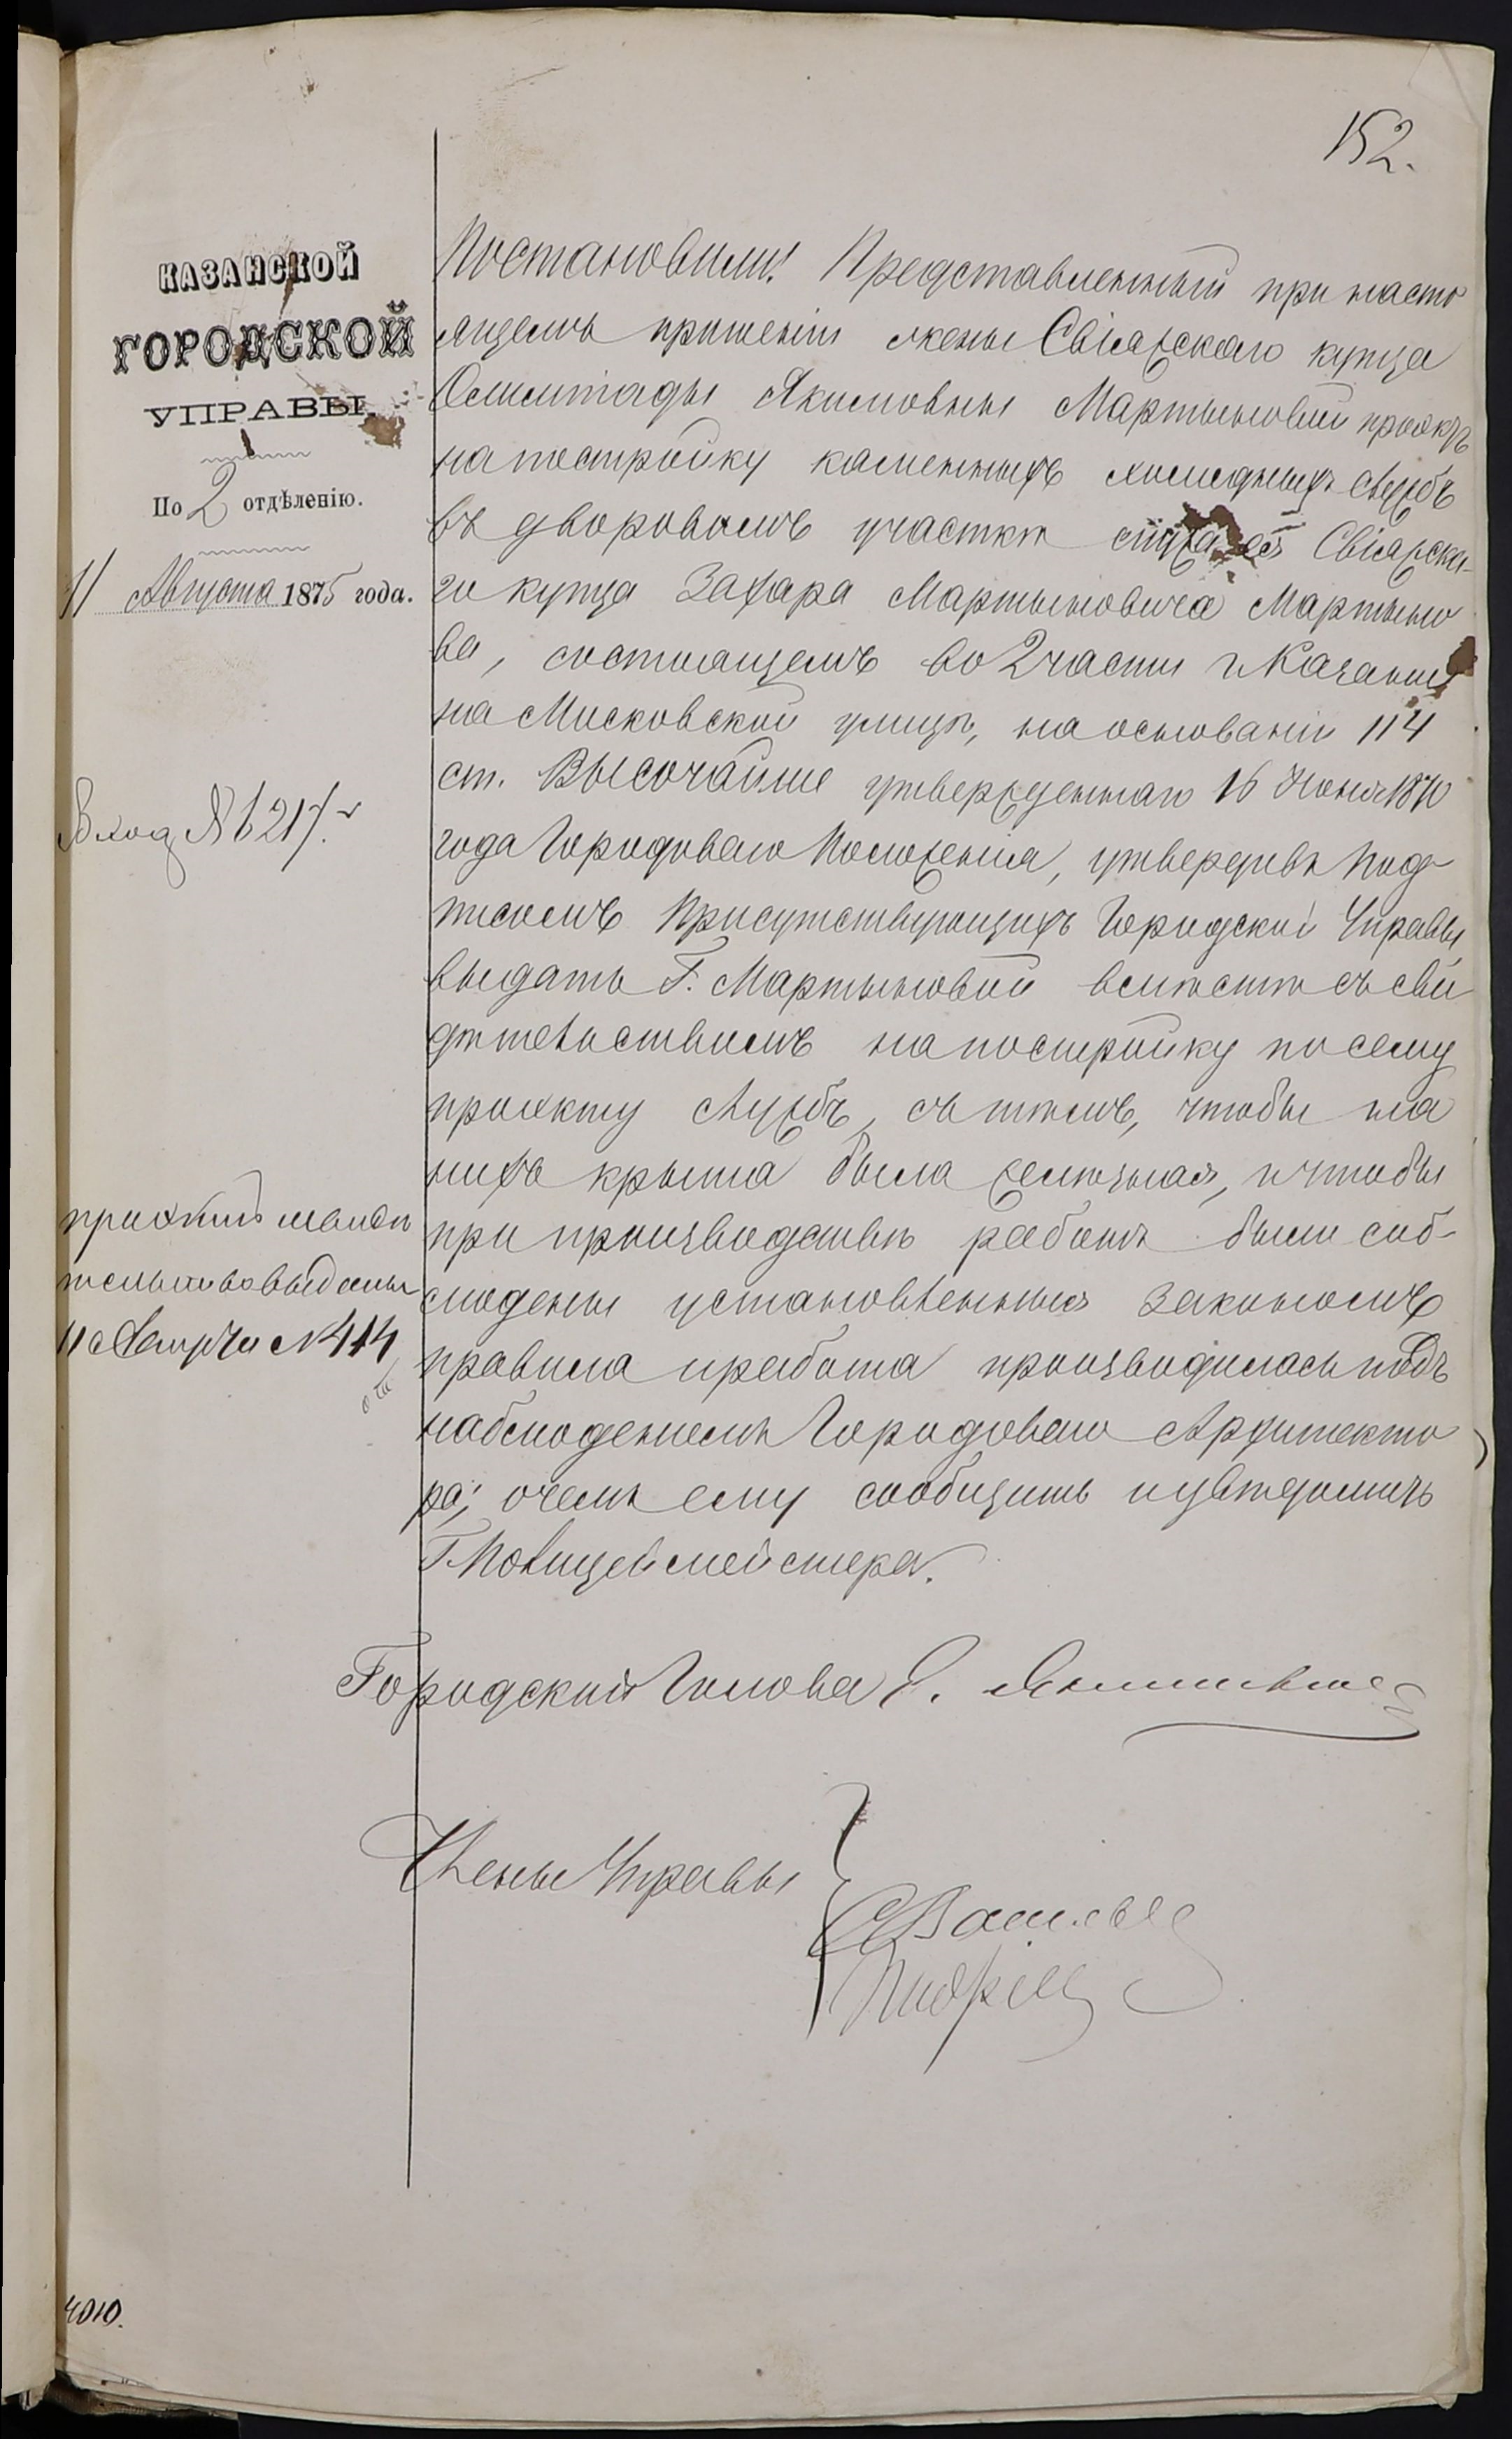 152.
КАЗАНСКОЙ
ГОРОДСКОЙ
УПРАВЫ.
По 2 отдѣленію.
11 Августа 1875 года.
Вход № 6217.
проэктъ и свидѣ
тельство выданы
11 Августа № 414
4010.
Постановили: Представленный при насто
ящемъ прошеніи жены Свіяжскаго купца
Олимпіады Якимовны Мартыновой проэктъ
на постройку каменныхъ холодныхъ службъ
въ дворовомъ участкѣ мужа ея Свіяжска-
го купца Захара Мартыновича Мартыно
ва, состоящемъ во 2 части г. Казани
на Московской улицѣ, на основаніи 114
ст. Высочайше утвержденнаго 16 Іюня 1870
года Городоваго Положенія, утвердивъ под-
писомъ Присутствующихъ Городской Управы
выдать Г. Мартыновой вмѣстѣ съ сви
дѣтельствомъ на постройку по сему
проэкту службъ, съ тѣмъ, чтобы на
нихъ крыша была желѣзная, и чтобы
при производствѣ работъ были соб-
людены установленныя закономъ
правила и работа производилась подъ
наблюденіемъ Городоваго Архитекто
ра; о чемъ ему сообщить и увѣдомить
Г. Полицеймейстера.
Городской Голова Э. Янишевскій
Члены Управы
Васильев